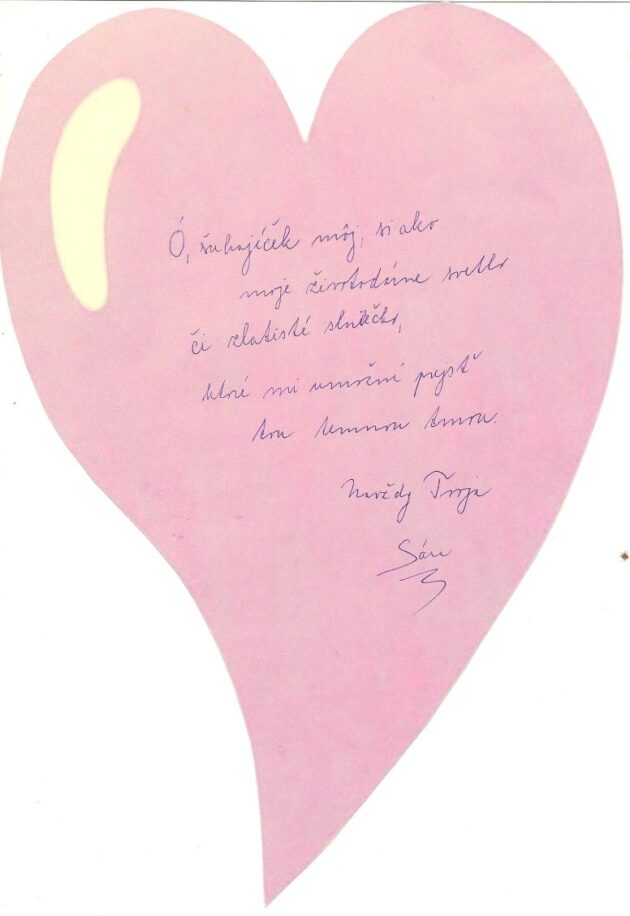 Ó, šuhajíček môj, si ako
moje životodárne svetlo
či zlatisté slniečko,
ktoré mi umožní prejsť
tou temnou tmou.
Navždy Tvoja
Sára